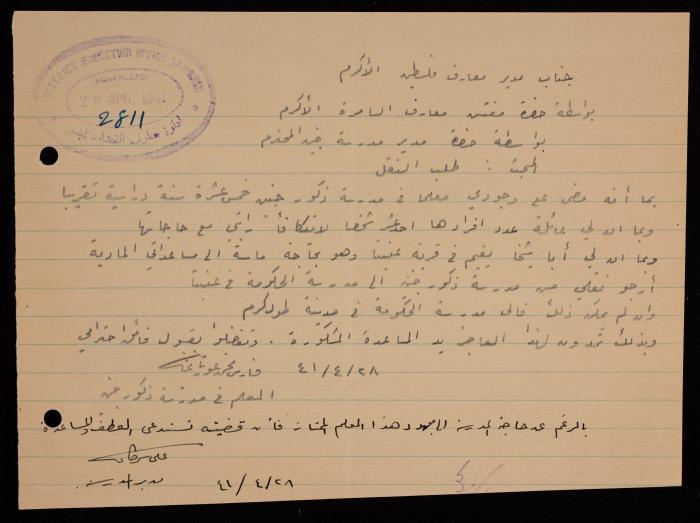 DISTRICT EDUCATION OFFICE SAMARIA
29 APR. 1941
2811
جناب مدير معارف فلسطين الأكرم
بواسطة حضرة مفتش معارف السامرة الأكرم
بواسطة حضرة مدير مدرسة جنين المحترم
المبحث : طلب النقل
بما أنه مضى على وجودي معلما في مدرسة ذكور جنين خمس عشرة سنة دراسية تقريبا
وبما ان لي عائلة عدد افرادها احد عشر شخصا لا تتكافأ راتبي مع حاجاتها
وبما ان لي أبا شيخا يقيم في قرية عنبتا وهو بحاجة ماسة الى مساعداتي المادية
أرجو نقلي من مدرسة ذكور جنين الى مدرسة الحكومة في عنبتا
وان لم يمكن ذلك فالى مدرسة الحكومة في مدينة طولكرم
وبذلك تمدون لهذا العاجز يد المساعدة المشكورة . وتفضلوا بقبول فائق احترامي
٤١/٤/٢٨ فارس محمد
المعلم في مدرسة ذكور جنين
بالرغم عن حاجة المدرسة الى مجهود هذا المعلم الممتاز فأن قضيته تستدعي العطف والمساعدة
علي
مدير المدرسة . ٤١/٤/٢٨